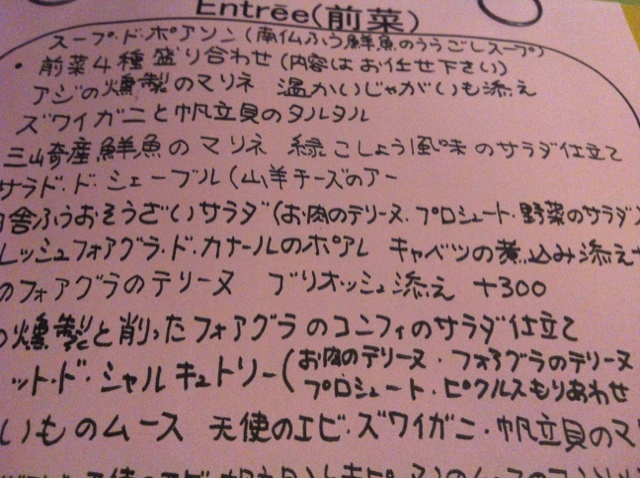 Entrēe(前菜)
スープ・ド・ポアソン(南仏ふう鮮魚のうらごしスープ)
・前菜4種盛り合わせ(内容はお任せ下さい)
アジの燻製のマリネ 温かいじゃがいも添え
ズワイガニと帆立貝のタルタル
三崎産鮮魚のマリネ 緑こしょう風味のサラダ仕立て
サラド・ド・シェーブル(山羊チーズのアー
舎ふうおそうざいサラダ(お肉のテリーヌ・プロシュート・野菜のサラダ
レッシュフォアグラ・ド・カナールのポアレ キャベツの煮込み添え
のフォアグラのテリーヌ ブリオッシュ添え +300
の燻製と削ったフォアグラのコンフィのサラダ仕立て
ット・ド・シャルキュトリー(お肉のテリーヌ・フォアグラのテリーヌ
プロシュート・ピクルスもりあわせ
いものムース 天使のエビ・ズワイガニ・帆立貝のマ